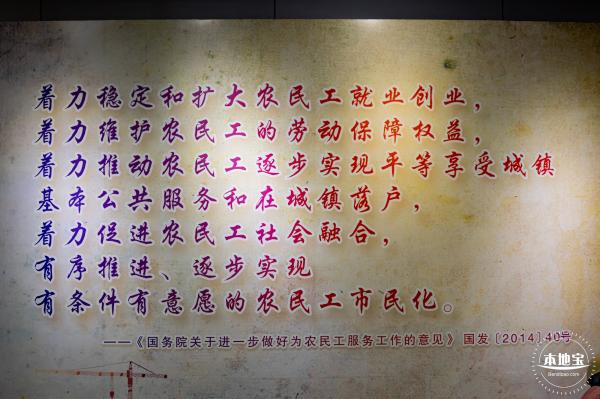 着力稳定和扩大农民工就业创业，
着力维护农民工的劳动保障权益，
着力推动农民工逐步实现平等享受城镇
基本公共服务和在城镇落户，
着力促进农民工社会融合，
有序推进、逐步实现
有条件有意愿的农民工市民化。
——《国务院关于进一步做好为农民工服务工作的意见》 国发〔2014〕40号
本地宝
Bendibao.com